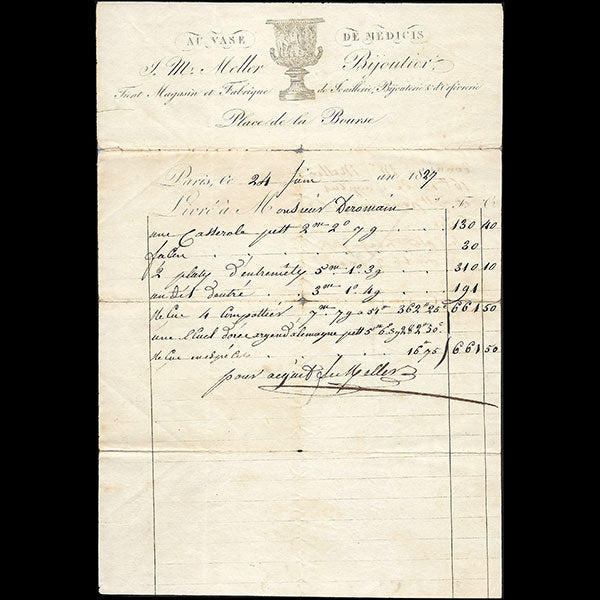 AU VASE DE MEDICIS
J. Me. Meller Bijoutier
Tient Magasin et Fabrique de Joaillerie, Bijouterie & d'Orfévrerie
Place de la Bourse
Paris, Ce 24 Juin an 1827
Livré à Monsieur Deromain F. C.
une Casserole 2m 2o 7g 130 40
façon 30
2 plats d'entremets 5m 1o 3g 310 10
un 3m 1o 4g 191
4 Compottier 7m 7g à 54 362 25c 661 50
une dorée argent d'alemagne 5m 6o 3g 282 30c
Reçue en espèce 16 75 661 50
pour acquit J. M Meller